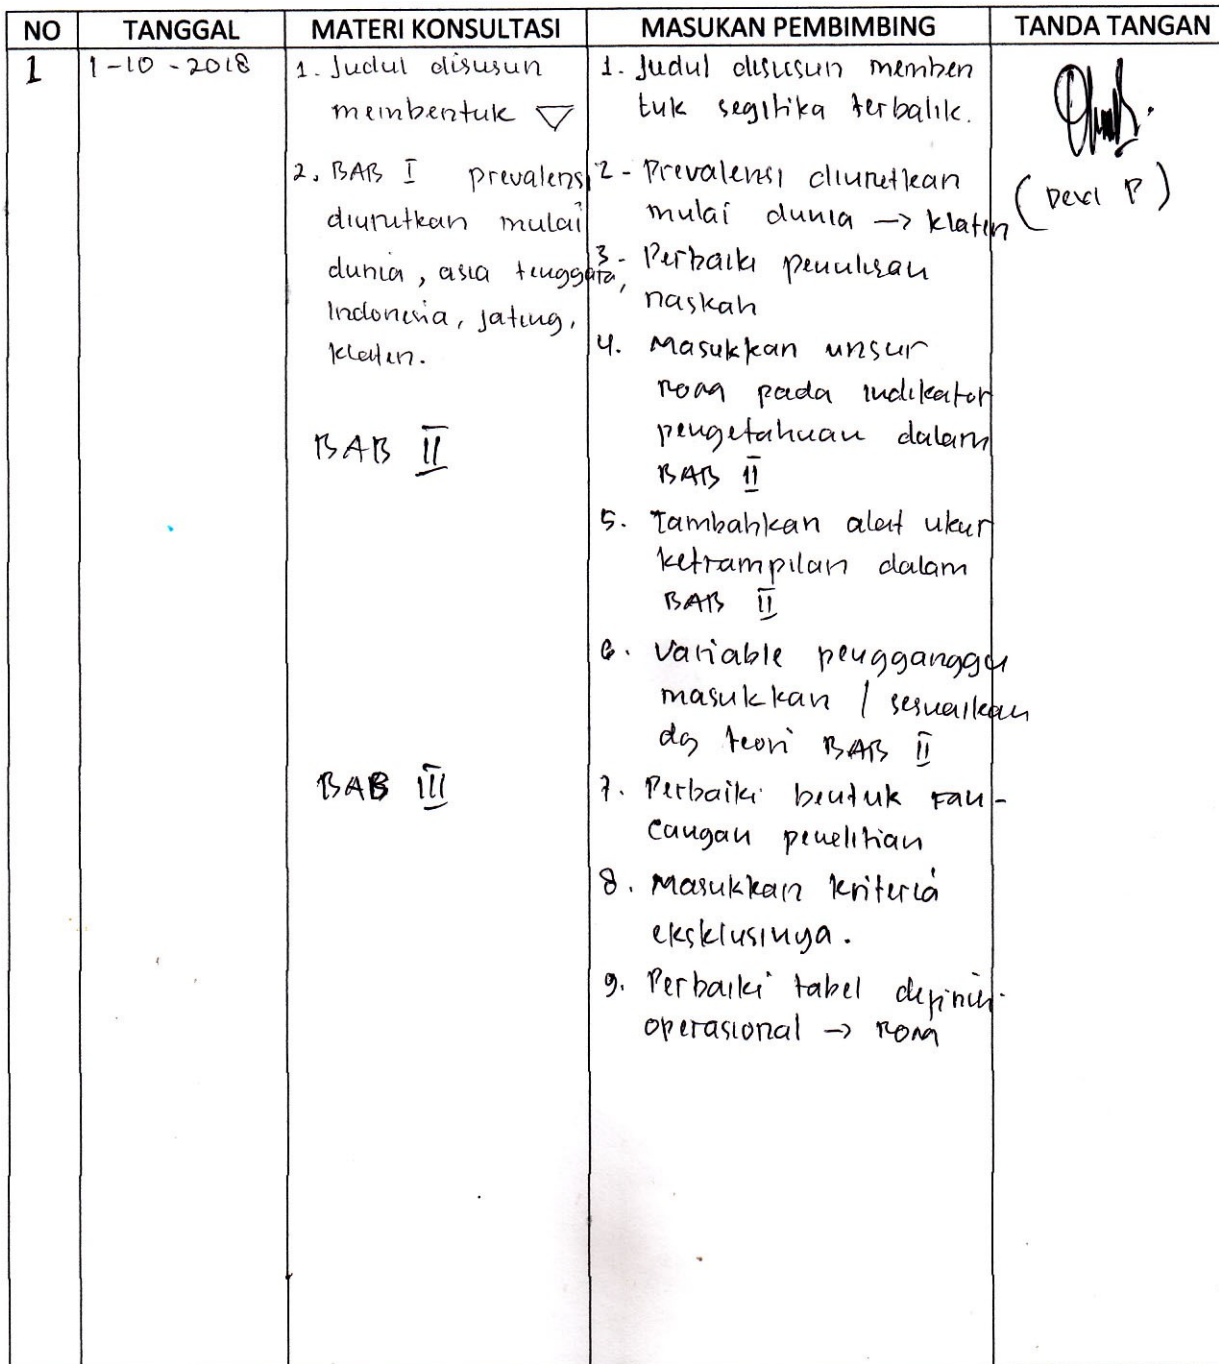 NO TANGGAL MATERI KONSULTASI MASUKAN PEMBIMBING TANDA TANGAN
1 1-10-2018
1. Judul disusun
membentuk ▽
2. BAB I prevalensi
diurutkan mulai
dunia, asia tenggara,
Indonesia, jateng,
klaten.
BAB II
BAB III
1. Judul disusun memben
tuk segitika terbalik.
2- Prevalensi diurutkan
mulai dunia -> klaten
3- Perbaiki penulisan
naskah
4. Masukkan unsur
ROM pada indikator
pengetahuan dalam
BAB II
5. Tambahkan alat ukur
ketrampilan dalam
BAB II
6. Variable pengganggu
masukkan / sesuaikan
dg teori BAB II
7. Perbaiki bentuk ran-
cangan penelitian
8. Masukkan kriteria
eksklusinya.
9. Perbaiki tabel definisi
operasional -> ROM
(Dewi P)